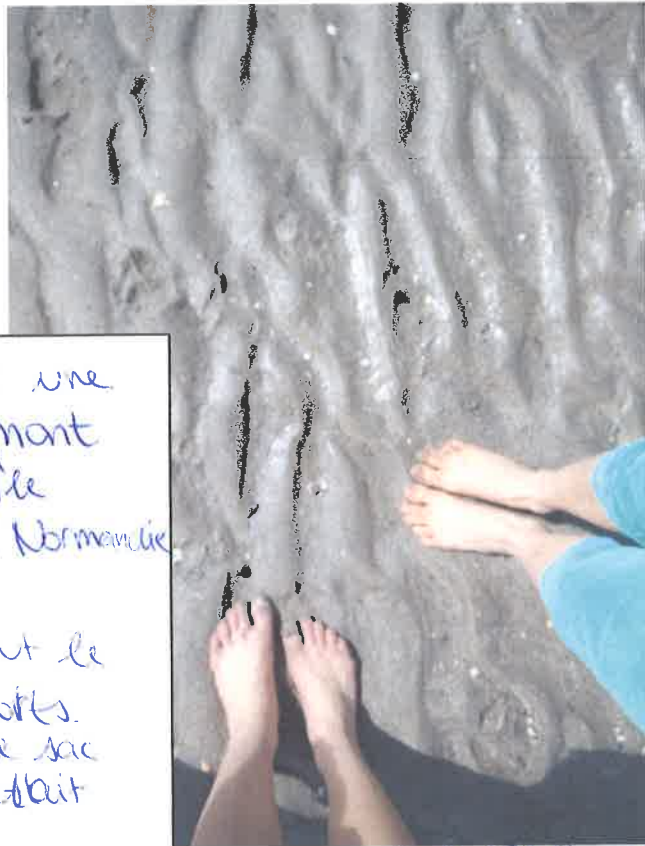 une
mont
île
Normandie
ut le
orts.
e sac
était